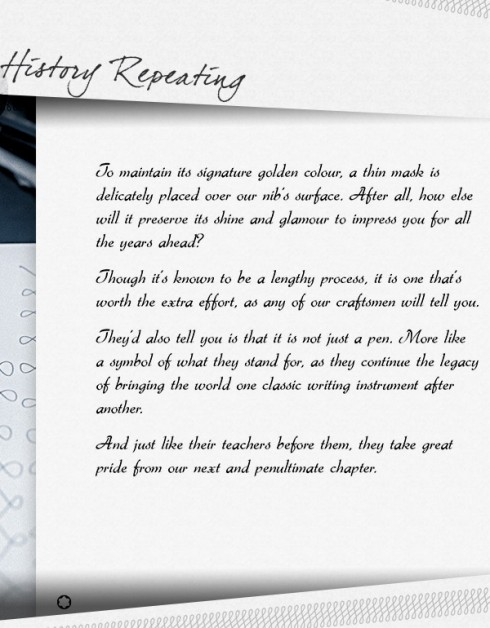 History Repeating
To maintain its signature golden colour, a thin mask is
delicately placed over our nib's surface. After all, how else
will it preserve its shine and glamour to impress you for all
the years ahead?
Though it's known to be a lengthy process, it is one that's
worth the extra effort, as any of our craftsmen will tell you.
They'd also tell you is that it is not just a pen. More like
a symbol of what they stand for, as they continue the legacy
of bringing the world one classic writing instrument after
another.
And just like their teachers before them, they take great
pride from our next and penultimate chapter.